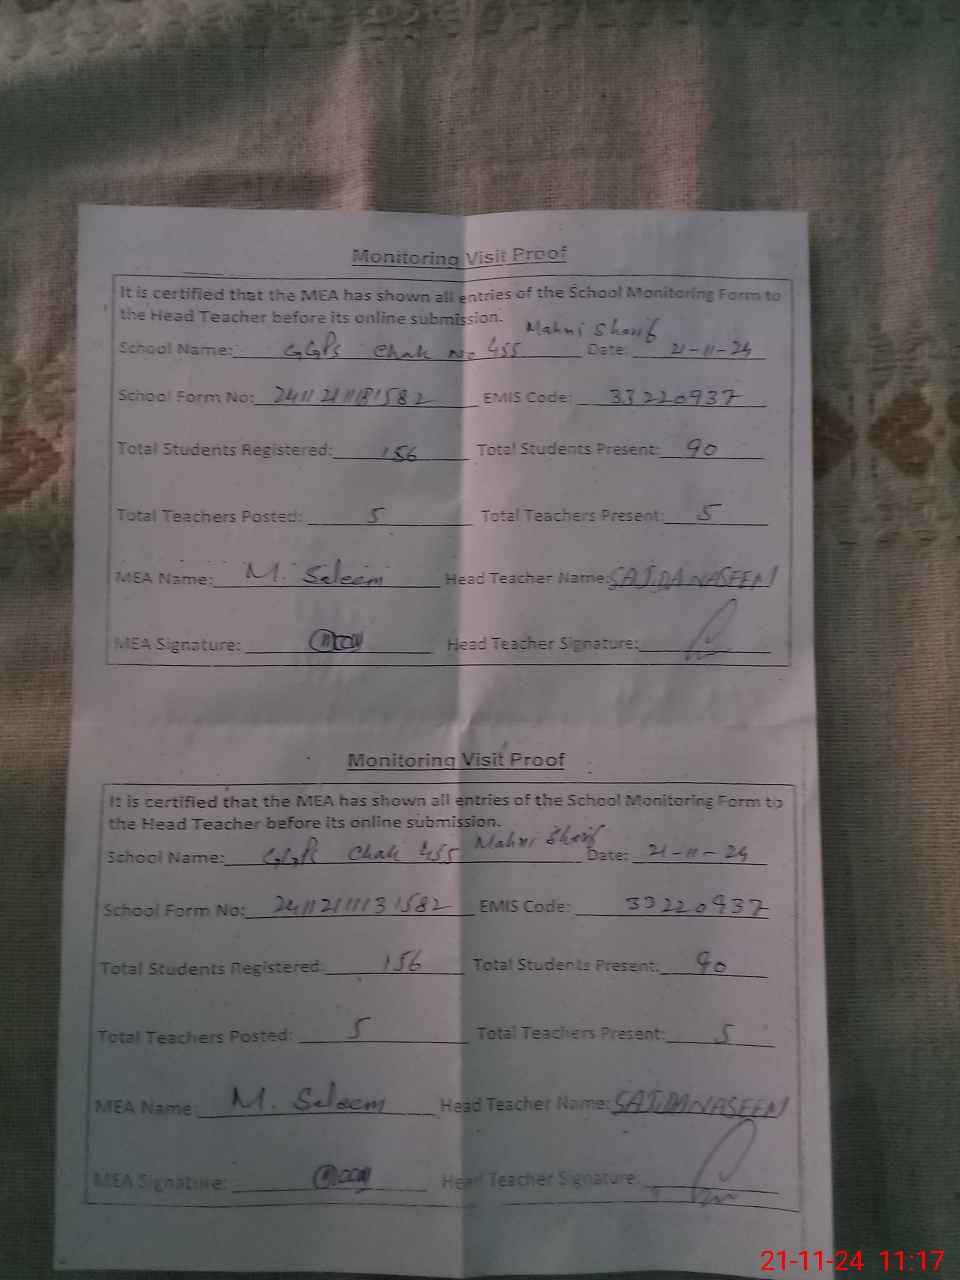 Monitoring Visit Proof
It is certified that the MEA has shown all entries of the School Monitoring Form to
the Head Teacher before its online submission.
Mahni Sharif
School Name: GGPS Chak No 455 Date: 21-11-24
School Form No: EMIS Code: 33220937
Total Students Registered: 156 Total Students Present: 90
Total Teachers Posted: 5 Total Teachers Present: 5
MEA Name: M. Saleem Head Teacher Name: SAJIDA NASEEM
MEA Signature: Head Teacher Signature:
Monitoring Visit Proof
It is certified that the MEA has shown all entries of the School Monitoring Form to
the Head Teacher before its online submission.
Mahni Sharif
School Name: GGPS Chak 455 Date: 21-11-24
School Form No: EMIS Code: 33220937
Total Students Registered: 156 Total Students Present: 90
Total Teachers Posted: 5 Total Teachers Present: 5
MEA Name: M. Saleem Head Teacher Name: SAJIDA NASEEM
MEA Signature: Head Teacher Signature:
21-11-24 11:17